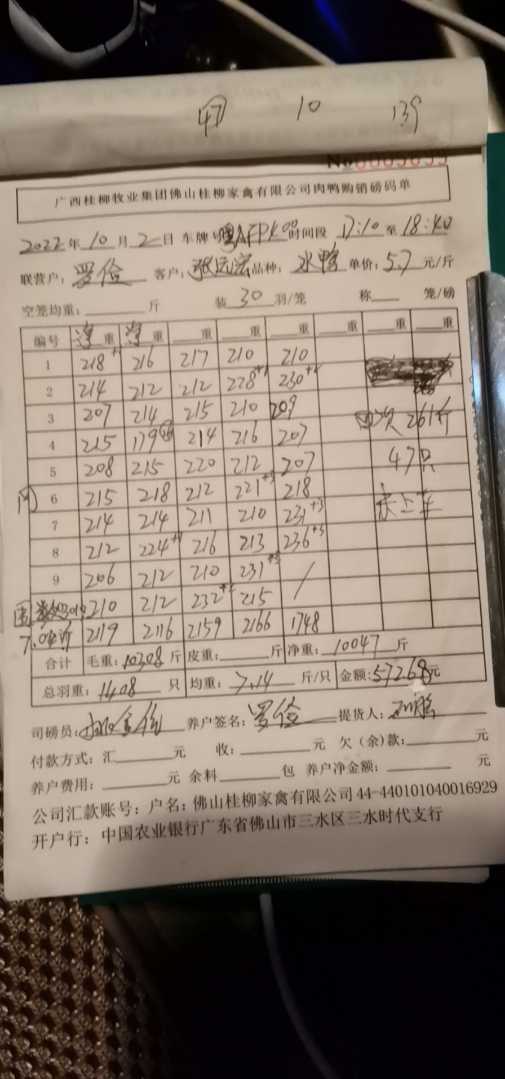 47 10 139
No
广西桂柳牧业集团佛山桂柳家禽有限公司肉鸭购销磅码单
2022年10月2日 车牌号 时间段 17:10至18:40
联营户: 罗俭 客户: 品种: 水鸭 单价: 5.7 元/斤
空笼均重: 斤 装 30 羽/笼 称 笼/磅
编号 净重 净重 重 重 重 重 重 重
1 218+1 216 217 210 210
2 214 212 212 228+1 230+4
3 207 214 215 210 209 次 261斤
4 215 179 214 216 207 47只
5 208 215 220 212 207
6 215 218 212 221+3 218
7 214 214 211 210 231+3
8 212 224+1 216 213 236+5
9 206 212 210 231+3 /
210 212 232 215
7.0斤 2119 2116 2159 2166 1748
合计 毛重: 10308 斤 皮重: 斤 净重: 10047 斤
总羽重: 1408 只 均重: 7.14 斤/只 金额: 57268元
司磅员: 养户签名: 罗俭 提货人:
付款方式: 汇 元 收: 元 欠(余)款: 元
养户费用: 元 余料 包 养户净金额: 元
公司汇款账号: 户名: 佛山桂柳家禽有限公司 44-440101040016929
开户行: 中国农业银行广东省佛山市三水区三水时代支行